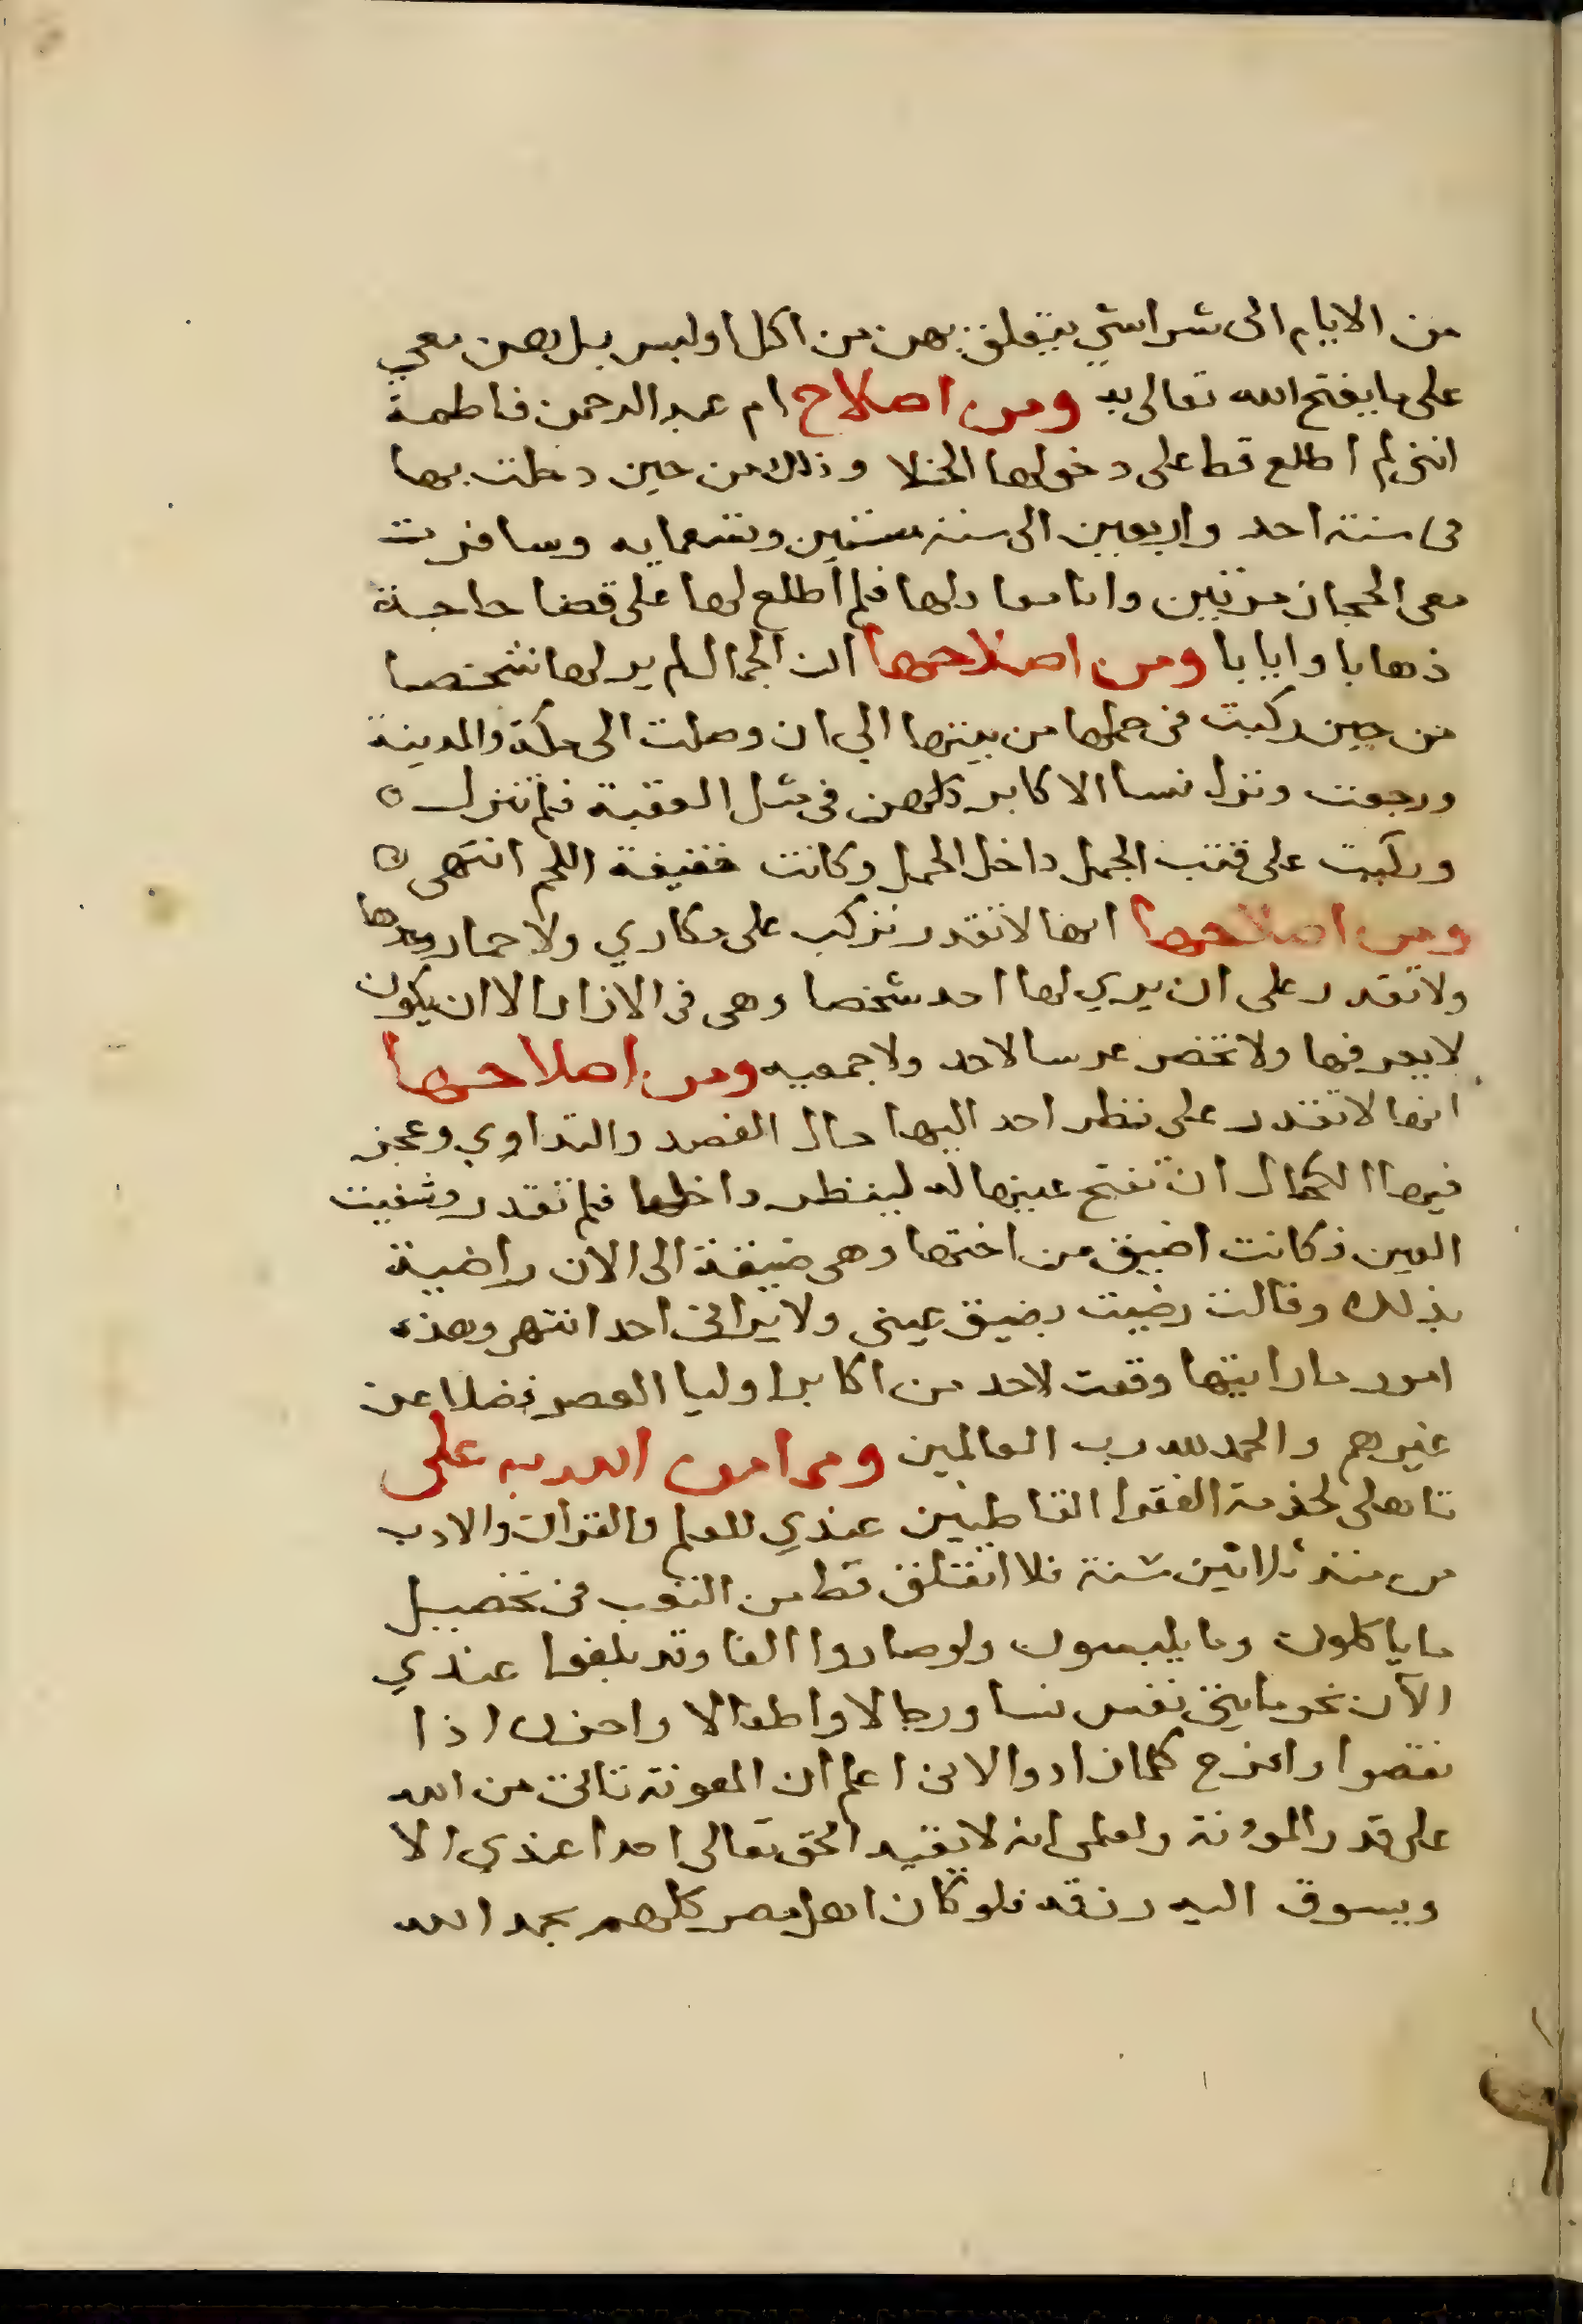 من الايام الى شراشي يتعلق بهن من اكل او لبس بل هن معي
على ما يفتح الله تعالى به ومن اصلاح ام عبد الرحمن فاطمة
انني لم اطلع قط على دخولها الخلا وذلك من حين دخلت بها
فى سنة احد واربعين الى سنة ستين وتسعمايه وسافرت
معى الحجاز مرتين وانا معادلها فلم اطلع لها على قضا حاجة
ذهابا وايابا ومن اصلاحها ان الجمال لم ير لها شخصا
من حين ركبت فى حملها من بيتها الي ان وصلت الى مكة والمدينة
ورجعت ونزل نسا الاكابر كلهن فى مثل العقبة فلم تنزل ه
وركبت على قتب الجمل داخل الحمل وكانت خفيفة اللحم انتهى ه
ومن اصلاحها انها لا تقدر تركب على مكاري ولا حمار وحدها
ولا تقدر على ان يري لها احد شخصا وهى فى الازار الا ان يكون
لا يعرفها ولا تحضر عرسا لاحد ولا جمعيه ومن اصلاحها
انها لا تقدر على نظر احد اليها حال الفصد والتداوي وعجز
فيها الكحال ان تفتح عينها له لينظر داخلها فلم تقدر وشفيت
العين فكانت اضيق من اختها وهى ضيقة الى الان راضية
بذلك وقالت رضيت بضيق عينى ولا يرانى احد انتهى وهذه
امور ما رايتها وقعت لاحد من اكابر اوليا العصر فضلا عن
غيرهم والحمد لله رب العالمين ومما من الله به على
تاهلى لخدمة الفقرا القاطنين عندي للعلم والقران والادب
من منذ ثلاثين سنة فلا اتقلق قط من التعب فى تحصيل
ما ياكلون وما يلبسون ولو صاروا الفا وقد بلغوا عندي
الآن نحو مايتى نفس نسا ورجالا واطفالا واحزن اذا
نقصوا وافرح كلما زادوا لانى اعلم ان المعونة تاتى من الله
على قدر المؤنة ولعلمى انه لا يقيد الحق تعالى احدا عندي الا
ويسوق اليه رزقه فلو كان اهل مصر كلهم بحمد الله